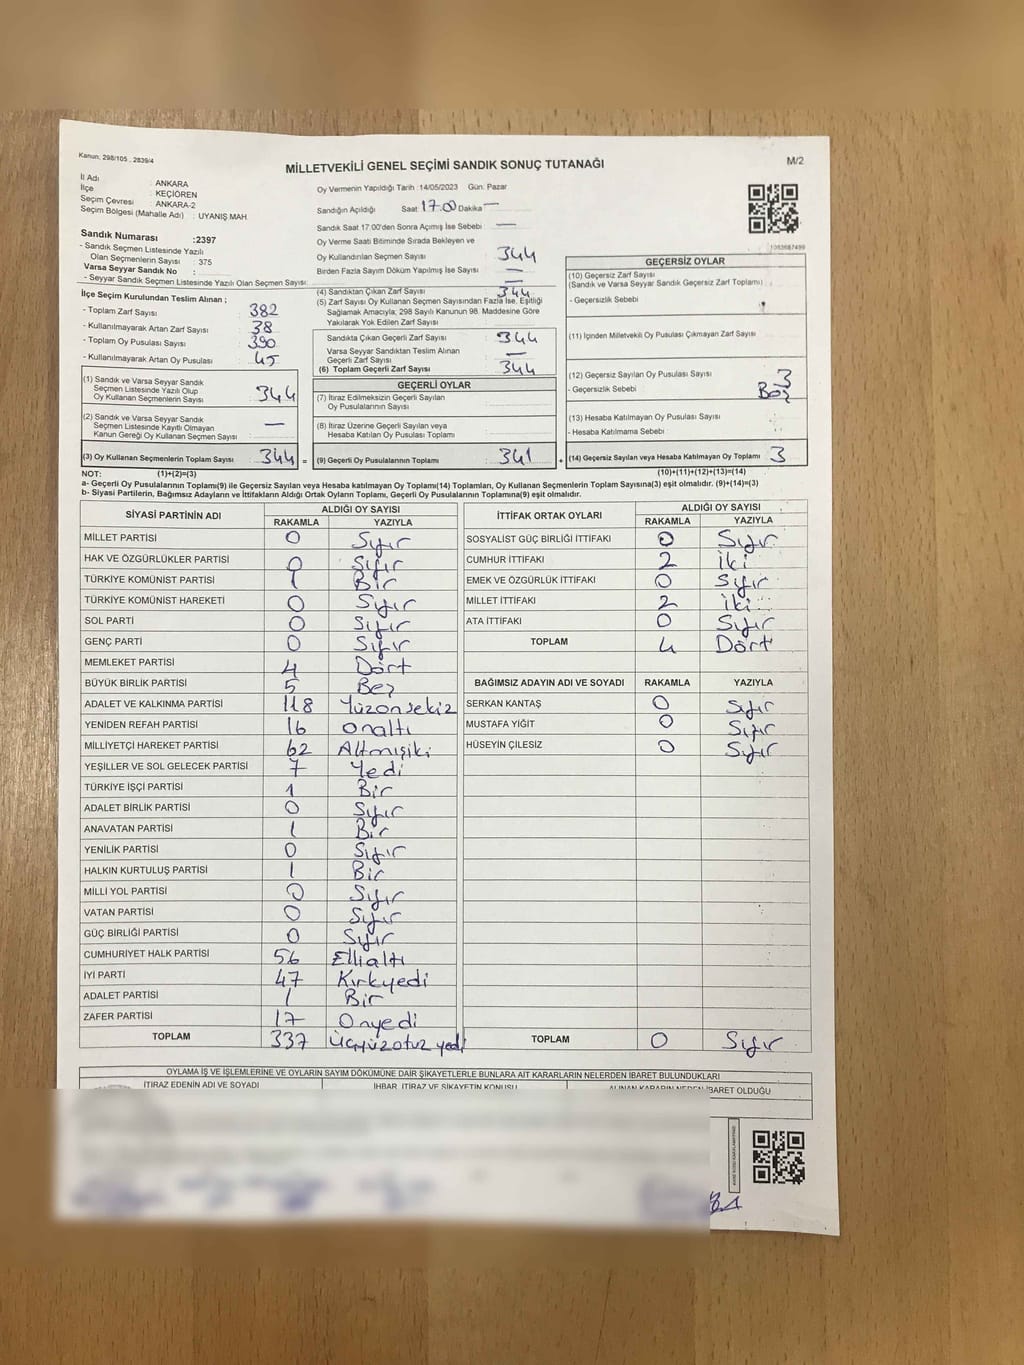 Kanun, 298/105 , 2839/4
MİLLETVEKİLİ GENEL SEÇİMİ SANDIK SONUÇ TUTANAĞI
M/2
İl Adı : ANKARA
İlçe : KEÇİÖREN
Seçim Çevresi : ANKARA-2
Seçim Bölgesi (Mahalle Adı) : UYANIŞ MAH.
Sandık Numarası :2397
- Sandık Seçmen Listesinde Yazılı
Olan Seçmenlerin Sayısı : 375
Varsa Seyyar Sandık No :
- Seyyar Sandık Seçmen Listesinde Yazılı Olan Seçmen Sayısı
İlçe Seçim Kurulundan Teslim Alınan ;
- Toplam Zarf Sayısı : 382
- Kullanılmayarak Artan Zarf Sayısı : 38
- Toplam Oy Pusulası Sayısı : 390
- Kullanılmayarak Artan Oy Pusulası : 45
(1) Sandık ve Varsa Seyyar Sandık
Seçmen Listesinde Yazılı Olup
Oy Kullanan Seçmenlerin Sayısı : 344
(2) Sandık ve Varsa Seyyar Sandık
Seçmen Listesinde Kayıtlı Olmayan
Kanun Gereği Oy Kullanan Seçmen Sayısı : —
(3) Oy Kullanan Seçmenlerin Toplam Sayısı : 344 =
Oy Vermenin Yapıldığı Tarih : 14/05/2023 Gün: Pazar
Sandığın Açıldığı Saat: 17.00 Dakika —
Sandık Saat 17.00'den Sonra Açımış İse Sebebi —
Oy Verme Saati Bitiminde Sırada Bekleyen ve
Oy Kullandırılan Seçmen Sayısı 344
Birden Fazla Sayım Döküm Yapılmış İse Sayısı —
(4) Sandıktan Çıkan Zarf Sayısı : 344
(5) Zarf Sayısı Oy Kullanan Seçmen Sayısından Fazla İse, Eşitliği
Sağlamak Amacıyla, 298 Sayılı Kanunun 98. Maddesine Göre
Yakılarak Yok Edilen Zarf Sayısı :
Sandıkta Çıkan Geçerli Zarf Sayısı : 344
Varsa Seyyar Sandıktan Teslim Alınan
Geçerli Zarf Sayısı : —
(6) Toplam Geçerli Zarf Sayısı : 344
GEÇERLİ OYLAR
(7) İtiraz Edilmeksizin Geçerli Sayılan
Oy Pusulalarının Sayısı :
(8) İtiraz Üzerine Geçerli Sayılan veya
Hesaba Katılan Oy Pusulası Toplamı :
(9) Geçerli Oy Pusulalarının Toplamı : 341 +
1083687499
GEÇERSİZ OYLAR
(10) Geçersiz Zarf Sayısı
(Sandık ve Varsa Seyyar Sandık Geçersiz Zarf Toplamı) :
- Geçersizlik Sebebi :
(11) İçinden Milletvekili Oy Pusulası Çıkmayan Zarf Sayısı :
(12) Geçersiz Sayılan Oy Pusulası Sayısı : 3
- Geçersizlik Sebebi : Boş
(13) Hesaba Katılmayan Oy Pusulası Sayısı :
- Hesaba Katılmama Sebebi :
(14) Geçersiz Sayılan veya Hesaba Katılmayan Oy Toplamı : 3
NOT: (1)+(2)=(3) (10)+(11)+(12)+(13)=(14)
a- Geçerli Oy Pusulalarının Toplamı(9) ile Geçersiz Sayılan ve Hesaba katılmayan Oy Toplamı(14) Toplamları, Oy Kullanan Seçmenlerin Toplam Sayısına(3) eşit olmalıdır. (9)+(14)=(3)
b- Siyasi Partilerin, Bağımsız Adayların ve İttifakların Aldığı Ortak Oyların Toplamı, Geçerli Oy Pusulalarının Toplamına(9) eşit olmalıdır.
SİYASİ PARTİNİN ADI ALDIĞI OY SAYISI
RAKAMLA YAZIYLA
MİLLET PARTİSİ 0 Sıfır
HAK VE ÖZGÜRLÜKLER PARTİSİ 0 Sıfır
TÜRKİYE KOMÜNİST PARTİSİ 1 Bir
TÜRKİYE KOMÜNİST HAREKETİ 0 Sıfır
SOL PARTİ 0 Sıfır
GENÇ PARTİ 0 Sıfır
MEMLEKET PARTİSİ 4 Dört
BÜYÜK BİRLİK PARTİSİ 5 Beş
ADALET VE KALKINMA PARTİSİ 118 Yüzonsekiz
YENİDEN REFAH PARTİSİ 16 Onaltı
MİLLİYETÇİ HAREKET PARTİSİ 62 Altmışiki
YEŞİLLER VE SOL GELECEK PARTİSİ 7 Yedi
TÜRKİYE İŞÇİ PARTİSİ 1 Bir
ADALET BİRLİK PARTİSİ 0 Sıfır
ANAVATAN PARTİSİ 1 Bir
YENİLİK PARTİSİ 0 Sıfır
HALKIN KURTULUŞ PARTİSİ 1 Bir
MİLLİ YOL PARTİSİ 0 Sıfır
VATAN PARTİSİ 0 Sıfır
GÜÇ BİRLİĞİ PARTİSİ 0 Sıfır
CUMHURİYET HALK PARTİSİ 56 Ellialtı
İYİ PARTİ 47 Kırkyedi
ADALET PARTİSİ 1 Bir
ZAFER PARTİSİ 17 Onyedi
TOPLAM 337 Üçyüzotuz yedi
İTTİFAK ORTAK OYLARI ALDIĞI OY SAYISI
RAKAMLA YAZIYLA
SOSYALİST GÜÇ BİRLİĞİ İTTİFAKI 0 Sıfır
CUMHUR İTTİFAKI 2 iki
EMEK VE ÖZGÜRLÜK İTTİFAKI 0 Sıfır
MİLLET İTTİFAKI 2 iki
ATA İTTİFAKI 0 Sıfır
TOPLAM 4 Dört
BAĞIMSIZ ADAYIN ADI VE SOYADI RAKAMLA YAZIYLA
SERKAN KANTAŞ 0 Sıfır
MUSTAFA YİĞİT 0 Sıfır
HÜSEYİN ÇİLESİZ 0 Sıfır
TOPLAM 0 Sıfır
OYLAMA İŞ VE İŞLEMLERİNE VE OYLARIN SAYIM DÖKÜMÜNE DAİR ŞİKAYETLERLE BUNLARA AİT KARARLARIN NELERDEN İBARET BULUNDUKLARI
İTİRAZ EDENİN ADI VE SOYADI İHBAR, İTİRAZ VE ŞİKAYETİN KONUSU ALINAN KARARIN NEDEN İBARET OLDUĞU